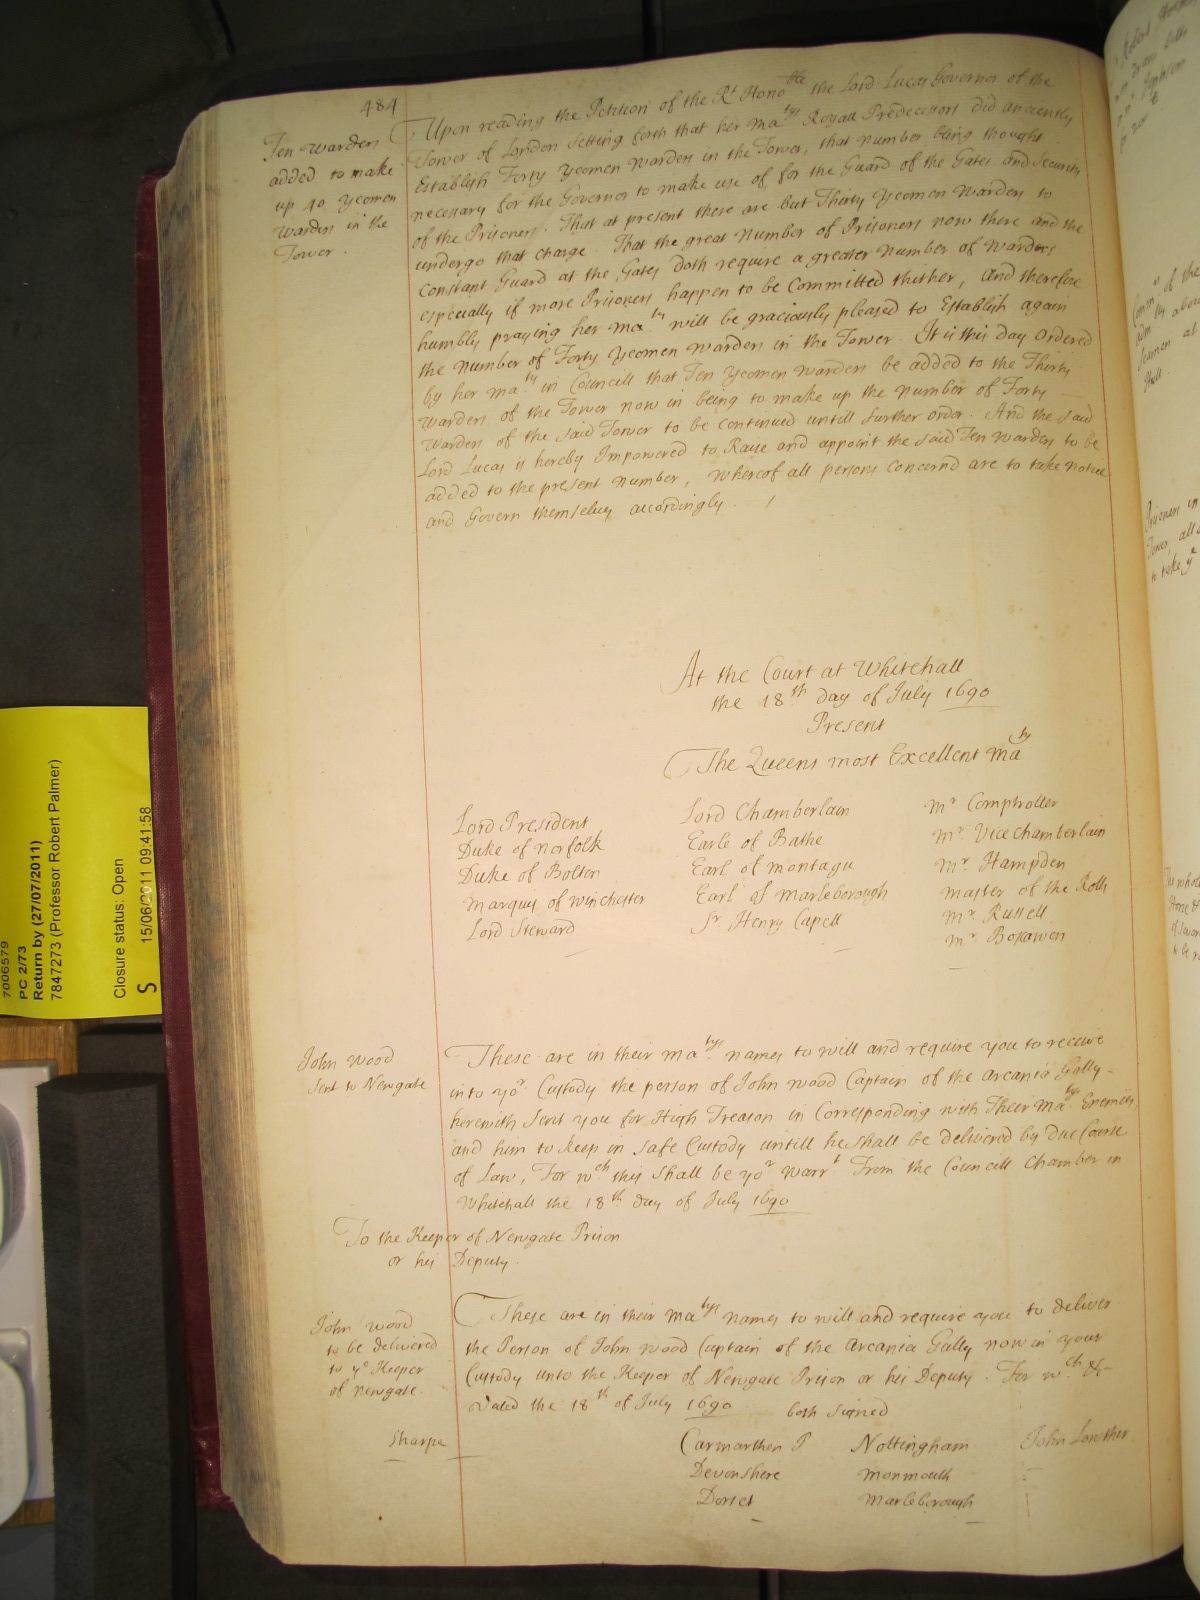 484
Ten Warders
added to make
up 40 Yeomen
Warders in the
Tower.
Upon reading the Petition of the Rt Honoble the Lord Lucas Governor of the
Tower of London Setting forth that her Matys Royall Predecessors did anciently
Establish Forty Yeomen Warders in the Tower, that number being thought
necessary for the Governor to make use of, for the Guard of the Gates and Security
of the Prisoners. That at present there are but Thirty Yeomen Warders to
undergo that charge. That the great Number of Prisoners now there and the
constant Guard at the Gates doth require a greater Number of Warders
especially if more Prisoners happen to be Committed thither, And therefore
humbly praying her Maty will be graciously pleased to Establish again
the Number of Forty Yeomen Warders in the Tower. It is this day Ordered
by her Maty in Councill that Ten Yeomen Warders be added to the Thirty
Warders of the Tower now in being to make up the Number of Forty
Warders of the said Tower to be continued untill further order. And the said
Lord Lucas is hereby Impowered to Raise and appoint the said Ten Warders to be
added to the present Number, Whereof all persons Concernd are to take notice
and Govern themselves accordingly.
At the Court at Whitehall
the 18th day of July 1690
Present
The Queens most Excellent Maty
Lord President
Duke of Norfolk
Duke of Bolton
Marques of Winchester
Lord Steward
Lord Chamberlain
Earle of Bathe
Earl of Montagu
Earl of Marleborough
Sr Henry Capell
Mr Comptroller
Mr Vice Chamberlain
Mr Hampden
Master of the Rolls
Mr Russell
Mr Boscawen
John Wood
Sent to Newgate
These are in their Matys names to will and require you to receive
into yor Custody the person of John Wood Captain of the Arcania Gally
herewith Sent you for High Treason in Corresponding with Their Matys Enemies,
and him to keep in safe Custody untill he shall be delivered by due Course
of Law, For wch this shall be yor Warrt From the Councill Chamber in
Whitehall the 18th day of July 1690
To the Keeper of Newgate Prison
or his Deputy.
John Wood
to be delivered
to ye Keeper
of Newgate.
These are in their Matys names to will and require you to deliver
the Person of John Wood Captain of the Arcania Gally now in your
Custody unto the Keeper of Newgate Prison or his Deputy. For wch &c
Dated the 18th of July 1690 both signed
Sharpe
Carmarthen P
Devonshere
Dorset
Nottingham
Monmouth
Marleborough
John Lowther
7006579
PC 2/73
Return by (27/07/2011)
7847273 (Professor Robert Palmer)
Closure status: Open
S 15/06/2011 09:41:58